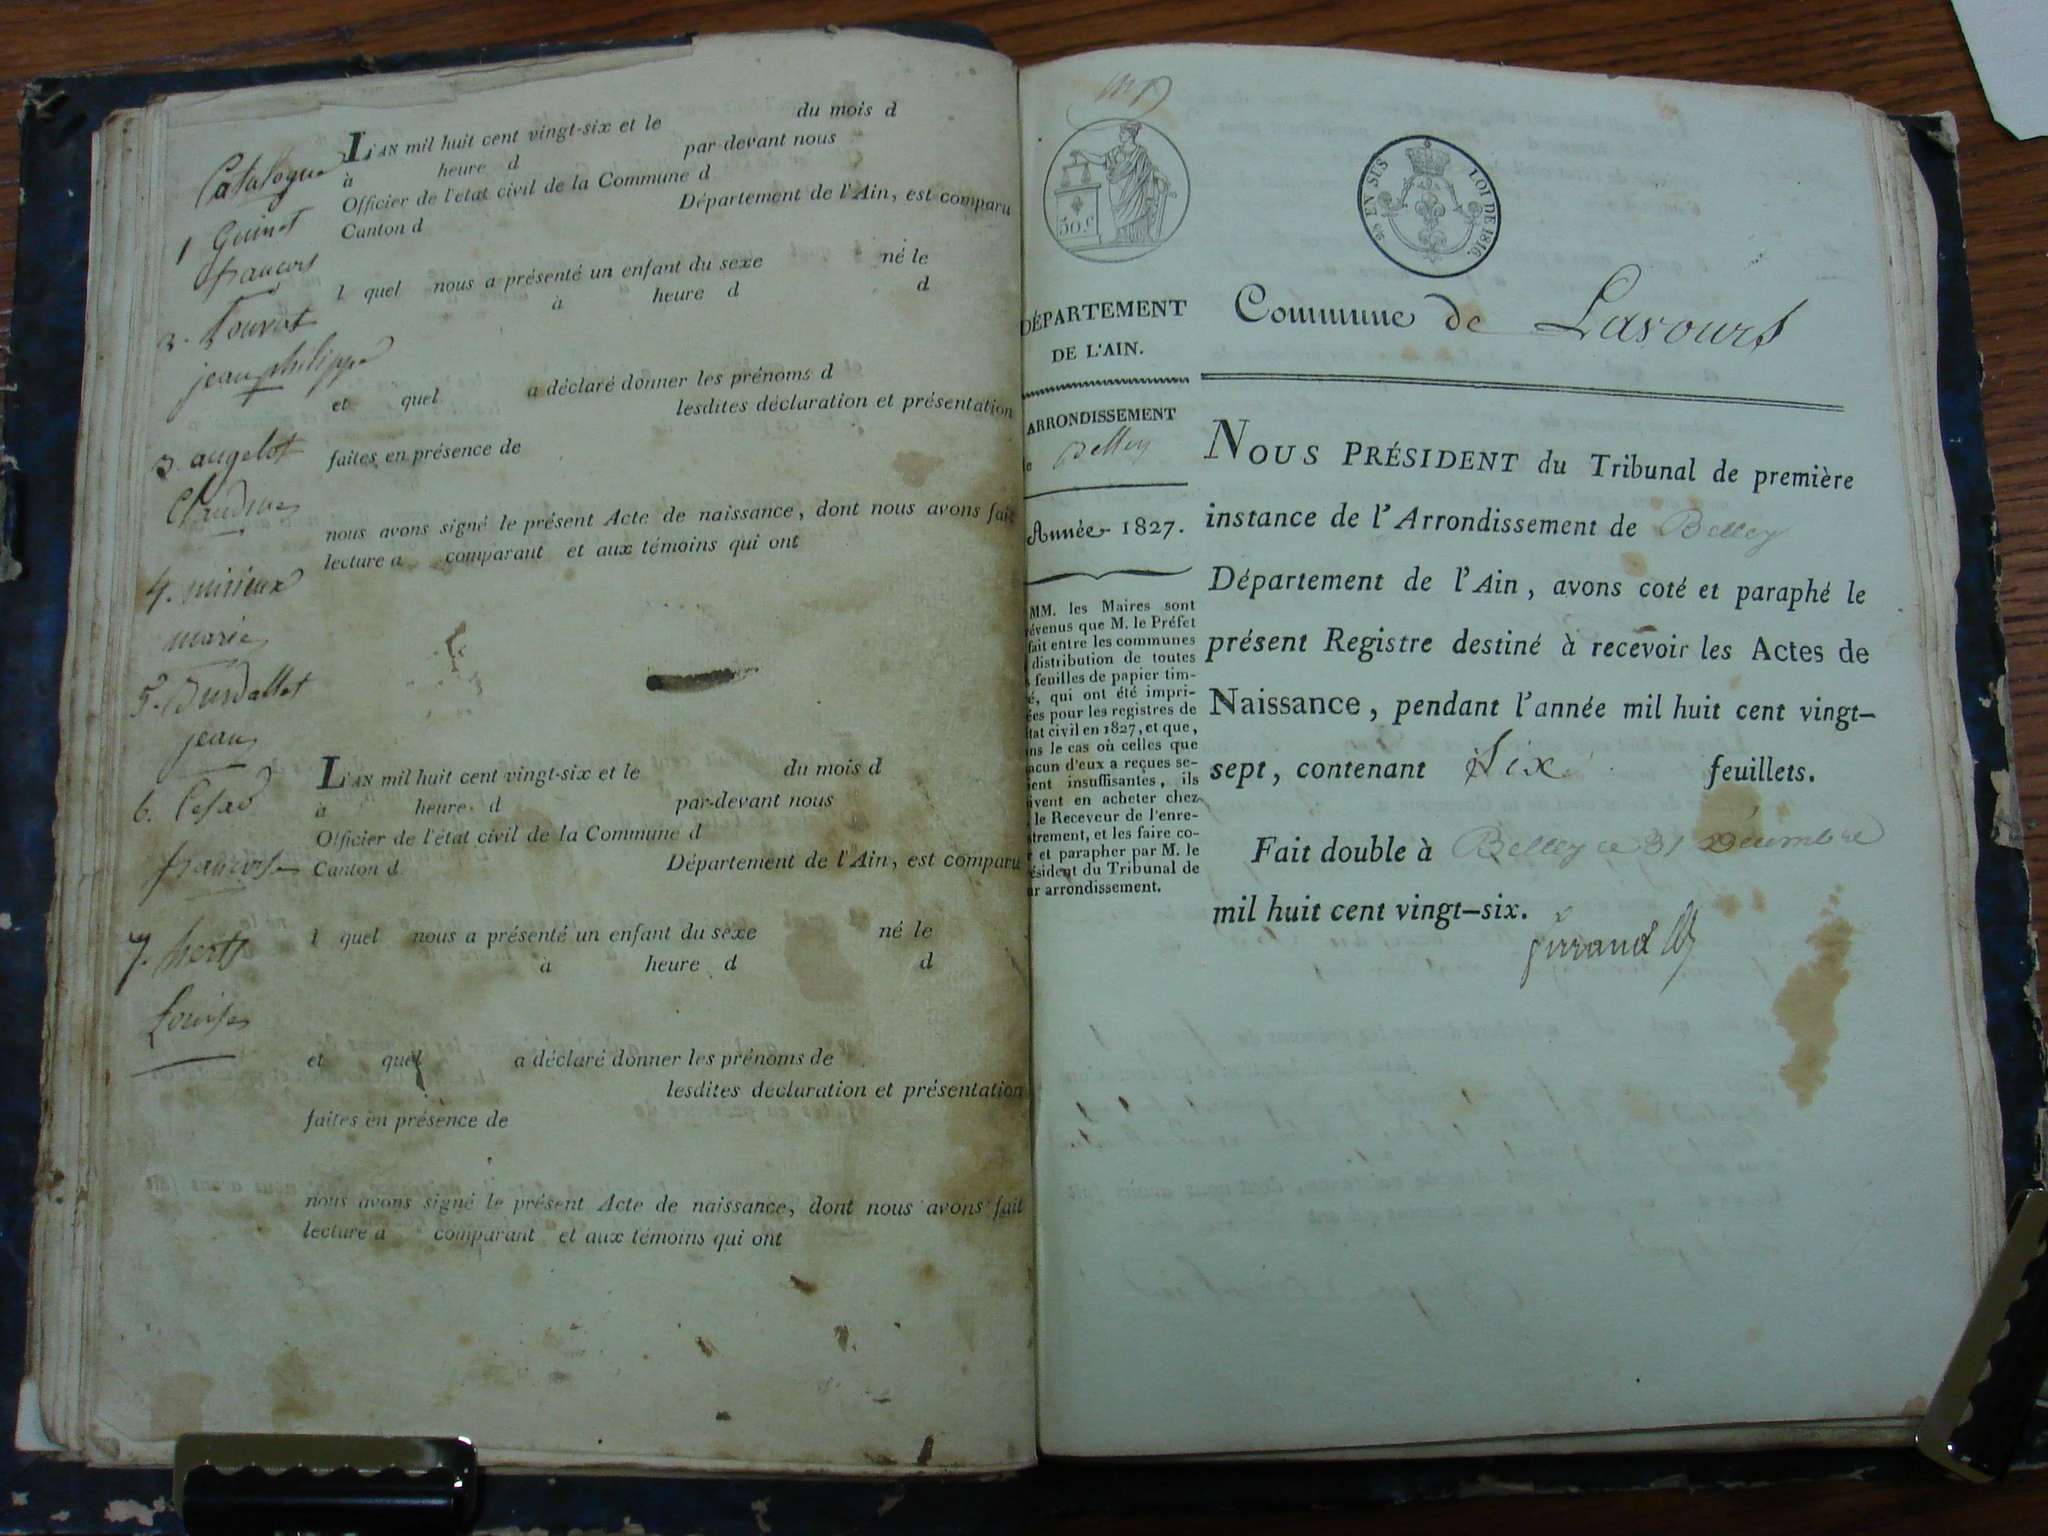 Catalogue
1 Guinet
francois
2. Touvat
jean philippe
3. angelot
Claudine
4. mirieux
marie
5. Burdallet
jean
6. Cesard
francoise
7. berts
Louise
L'AN mil huit cent vingt-six et le du mois d
à heure d par-devant nous
Officier de l'état civil de la Commune d
Canton d Département de l'Ain, est comparu
l quel nous a présenté un enfant du sexe né le
à heure d d
et quel a déclaré donner les prénoms d
lesdites déclaration et présentation
faites en présence de
nous avons signé le présent Acte de naissance, dont nous avons fait
lecture a comparant et aux témoins qui ont
L'AN mil huit cent vingt-six et le du mois d
à heure d par-devant nous
Officier de l'état civil de la Commune d
Canton d Département de l'Ain, est comparu
l quel nous a présenté un enfant du sexe né le
à heure d d
et quel a déclaré donner les prénoms de
lesdites déclaration et présentation
faites en présence de
nous avons signé le présent Acte de naissance, dont nous avons fait
lecture a comparant et aux témoins qui ont
50.c
EN SUS LOI DE 1816
DÉPARTEMENT
DE L'AIN.
ARRONDISSEMENT
e Belley
Année 1827.
MM. les Maires sont
évenus que M. le Préfet
fait entre les communes
distribution de toutes
s feuilles de papier tim-
é, qui ont été impri-
ées pour les registres de
tat civil en 1827, et que,
ns le cas où celles que
acun d'eux a reçues se-
ient insuffisantes, ils
ivent en acheter chez
le Receveur de l'enre-
strement, et les faire co-
r et parapher par M. le
ésident du Tribunal de
ur arrondissement.
Commune de Lavours
NOUS PRÉSIDENT du Tribunal de première
instance de l'Arrondissement de Belley
Département de l'Ain, avons coté et paraphé le
présent Registre destiné à recevoir les Actes de
Naissance, pendant l'année mil huit cent vingt-
sept, contenant Six feuillets.
Fait double à Belley ce 31 Décembre
mil huit cent vingt-six.